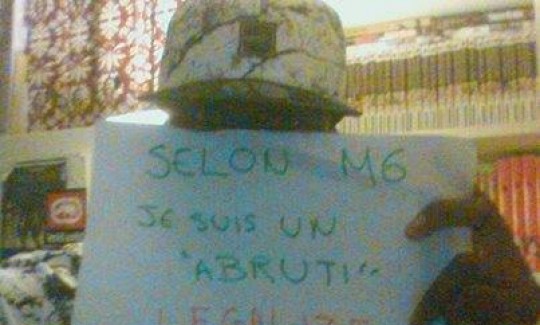 SELON M6
JE SUIS UN
"ABRUTI"
LEGALIZE